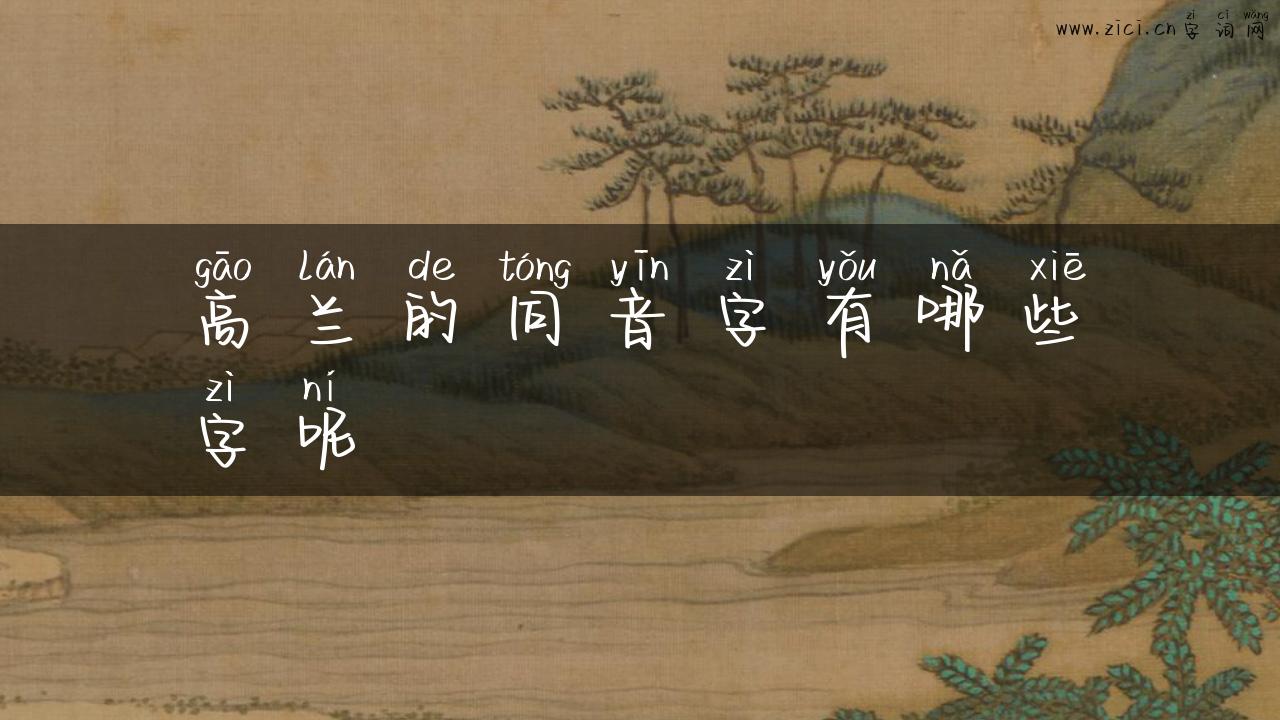 zì cí wǎng
www.zici.cn 字词网
gāo lán de tóng yīn zì yǒu nǎ xiē
高兰的同音字有哪些
zì ní
字呢